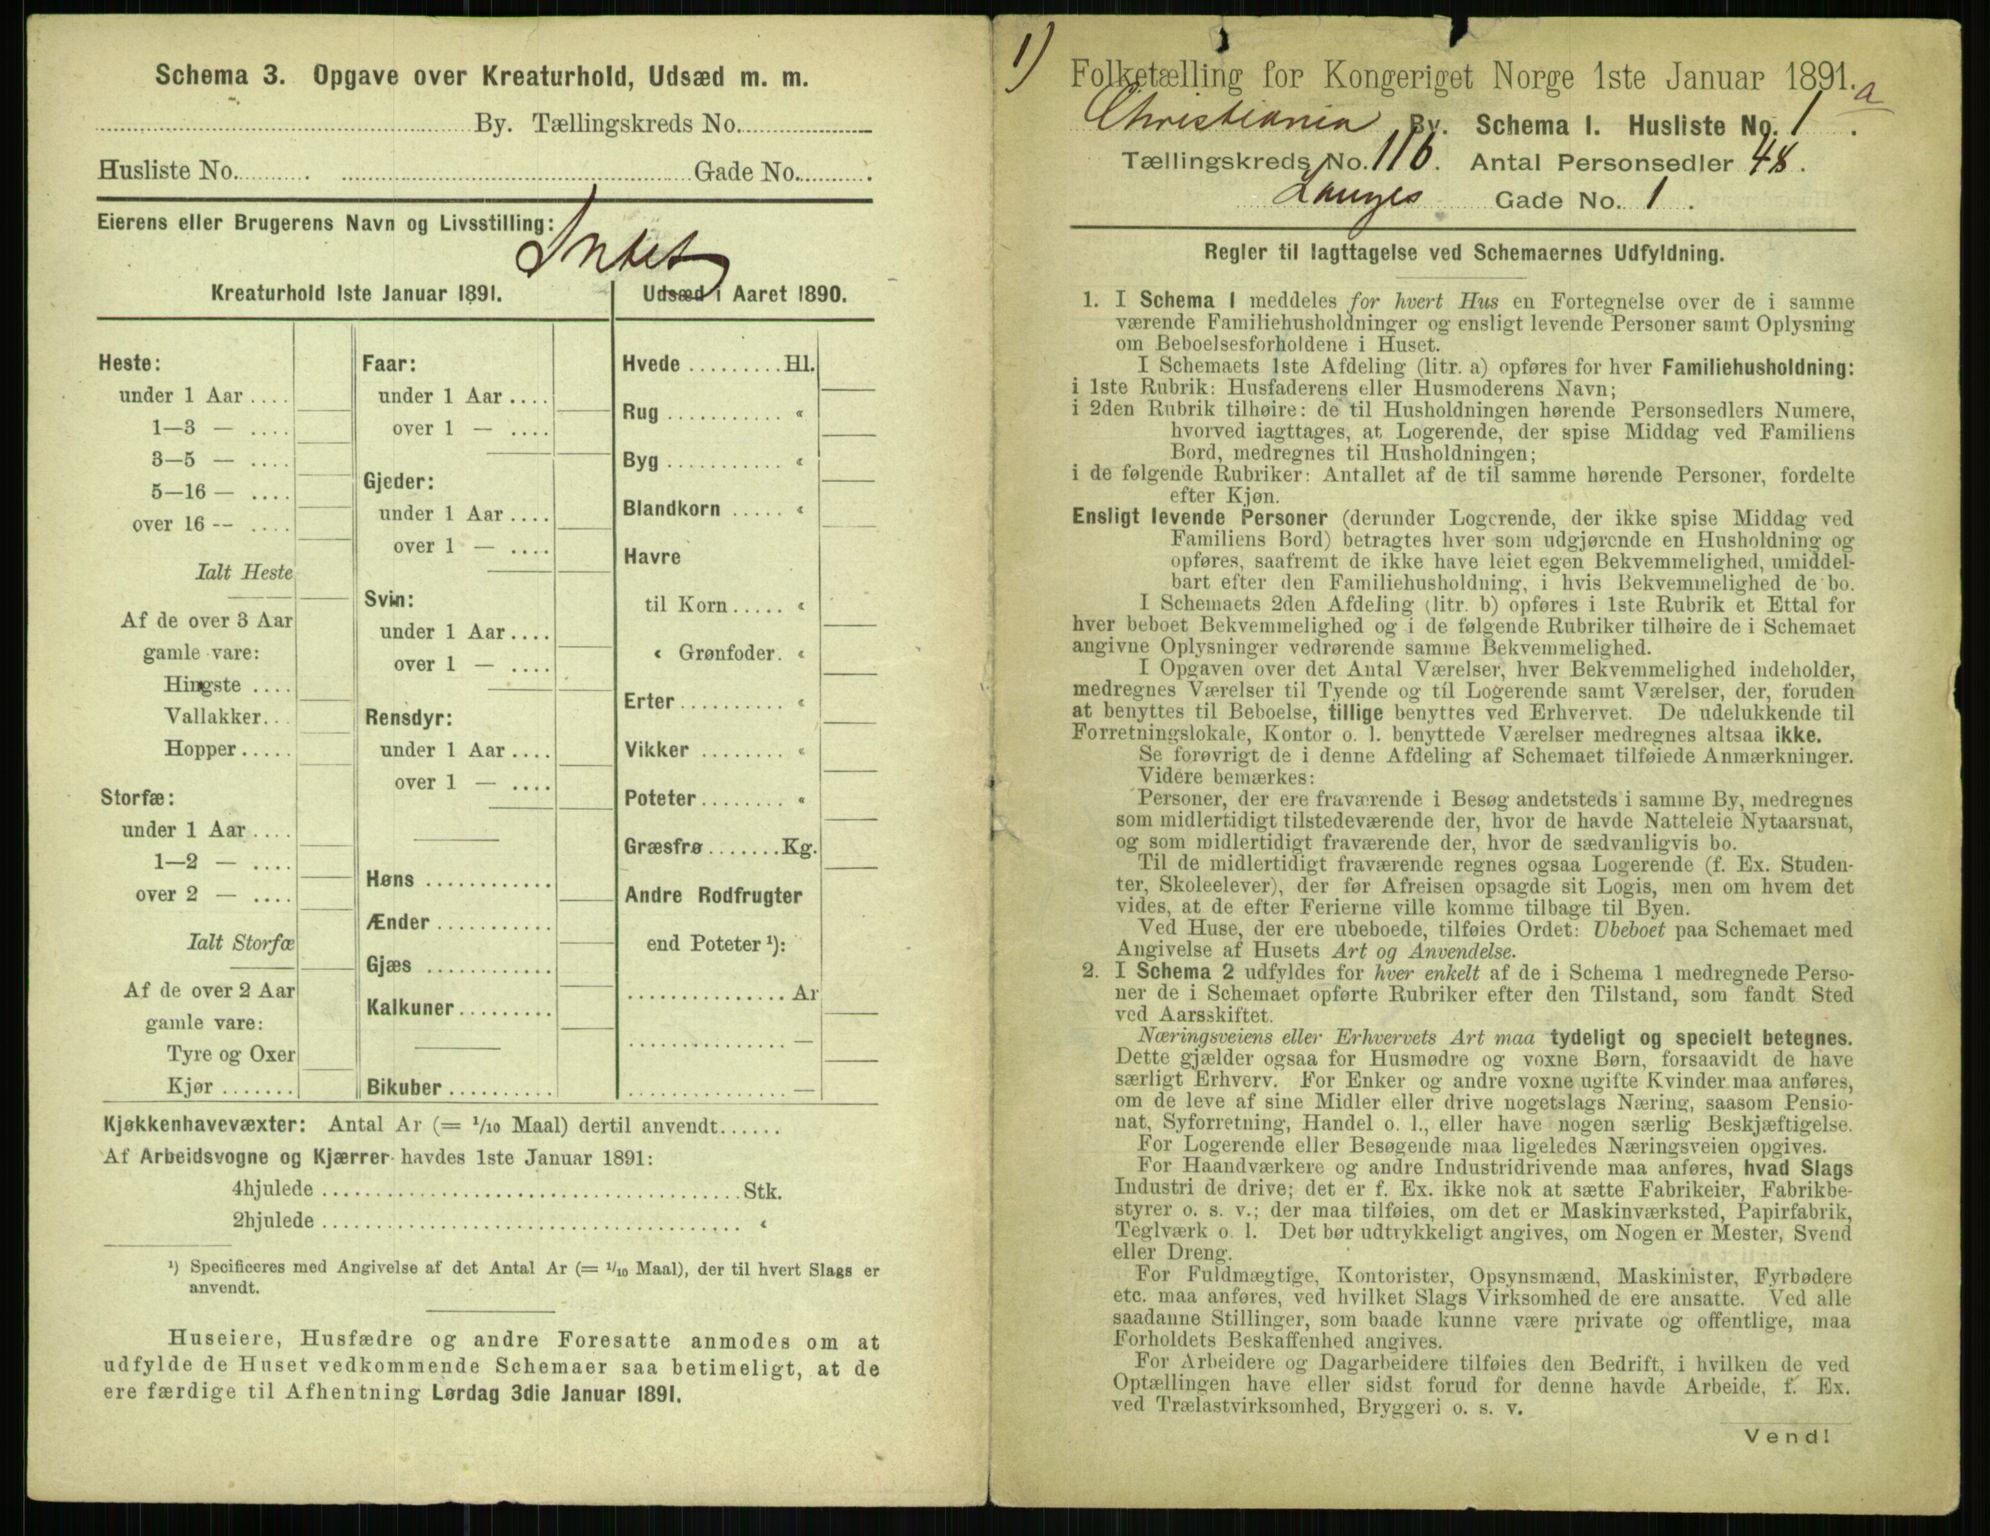 Schema 3. Opgave over Kreaturhold, Udsæd m. m.
By. Tællingskreds No.
Husliste No. Gade No.
Eierens eller Brugerens Navn og Livsstilling:
Intet
Kreaturhold 1ste Januar 1891.
Heste:
under 1 Aar
1—3 —
3—5 —
5—16 —
over 16 --
Ialt Heste
Af de over 3 Aar
gamle vare:
Hingste
Vallakker
Hopper
Storfæ:
under 1 Aar
1—2 —
over 2 —
Ialt Storfæ
Af de over 2 Aar
gamle vare:
Tyre og Oxer
Kjør
Faar:
under 1 Aar
over 1 —
Gjeder:
under 1 Aar
over 1 —
Svin:
under 1 Aar
over 1 —
Rensdyr:
under 1 Aar
over 1 —
Høns
Ænder
Gjæs
Kalkuner
Bikuber
Udsæd i Aaret 1890.
Hvede Hl.
Rug «
Byg «
Blandkorn «
Havre
til Korn «
« Grønfoder «
Erter «
Vikker «
Poteter «
Græsfrø Kg.
Andre Rodfrugter
end Poteter ¹):
Ar
—
—
Kjøkkenhavevæxter: Antal Ar (= 1/10 Maal) dertil anvendt
Af Arbeidsvogne og Kjærrer havdes 1ste Januar 1891:
4hjulede Stk.
2hjulede «
¹) Specificeres med Angivelse af det Antal Ar (= 1/10 Maal), der til hvert Slags er
anvendt.
Huseiere, Husfædre og andre Foresatte anmodes om at
udfylde de Huset vedkommende Schemaer saa betimeligt, at de
ere færdige til Afhentning Lørdag 3die Januar 1891.
1)
Folketælling for Kongeriget Norge 1ste Januar 1891.
Christiania By. Schema 1. Husliste No. 1 a.
Tællingskreds No. 116. Antal Personsedler 48.
Langes Gade No. 1.
Regler til Iagttagelse ved Schemaernes Udfyldning.
1. I Schema 1 meddeles for hvert Hus en Fortegnelse over de i samme
værende Familiehusholdninger og ensligt levende Personer samt Oplysning
om Beboelsesforholdene i Huset.
I Schemaets 1ste Afdeling (litr. a) opføres for hver Familiehusholdning:
i 1ste Rubrik: Husfaderens eller Husmoderens Navn;
i 2den Rubrik tilhøire: de til Husholdningen hørende Personsedlers Numere,
hvorved iagttages, at Logerende, der spise Middag ved Familiens
Bord, medregnes til Husholdningen;
i de følgende Rubriker: Antallet af de til samme hørende Personer, fordelte
efter Kjøn.
Ensligt levende Personer (derunder Logerende, der ikke spise Middag ved
Familiens Bord) betragtes hver som udgjørende en Husholdning og
opføres, saafremt de ikke have leiet egen Bekvemmelighed, umiddel-
bart efter den Familiehusholdning, i hvis Bekvemmelighed de bo.
I Schemaets 2den Afdeling (litr. b) opføres i 1ste Rubrik et Ettal for
hver beboet Bekvemmelighed og i de følgende Rubriker tilhøire de i Schemaet
angivne Oplysninger vedrørende samme Bekvemmelighed.
I Opgaven over det Antal Værelser, hver Bekvemmelighed indeholder,
medregnes Værelser til Tyende og til Logerende samt Værelser, der, foruden
at benyttes til Beboelse, tillige benyttes ved Erhvervet. De udelukkende til
Forretningslokale, Kontor o. l. benyttede Værelser medregnes altsaa ikke.
Se forøvrigt de i denne Afdeling af Schemaet tilføiede Anmærkninger.
Videre bemærkes:
Personer, der ere fraværende i Besøg andetsteds i samme By, medregnes
som midlertidigt tilstedeværende der, hvor de havde Natteleie Nytaarsnat,
og som midlertidigt fraværende der, hvor de sædvanligvis bo.
Til de midlertidigt fraværende regnes ogsaa Logerende (f. Ex. Studen-
ter, Skoleelever), der før Afreisen opsagde sit Logis, men om hvem det
vides, at de efter Ferierne ville komme tilbage til Byen.
Ved Huse, der ere ubeboede, tilføies Ordet: Ubeboet paa Schemaet med
Angivelse af Husets Art og Anvendelse.
2. I Schema 2 udfyldes for hver enkelt af de i Schema 1 medregnede Perso-
ner de i Schemaet opførte Rubriker efter den Tilstand, som fandt Sted
ved Aarsskiftet.
Næringsveiens eller Erhvervets Art maa tydeligt og specielt betegnes.
Dette gjælder ogsaa for Husmødre og voxne Børn, forsaavidt de have
særligt Erhverv. For Enker og andre voxne ugifte Kvinder maa anføres,
om de leve af sine Midler eller drive nogetslags Næring, saasom Pensio-
nat, Syforretning, Handel o. l., eller have nogen særlig Beskjæftigelse.
For Logerende eller Besøgende maa ligeledes Næringsveien opgives.
For Haandværkere og andre Industridrivende maa anføres, hvad Slags
Industri de drive; det er f. Ex. ikke nok at sætte Fabrikeier, Fabrikbe-
styrer o. s. v.; der maa tilføies, om det er Maskinværksted, Papirfabrik,
Teglværk o. l. Det bør udtrykkeligt angives, om Nogen er Mester, Svend
eller Dreng.
For Fuldmægtige, Kontorister, Opsynsmænd, Maskinister, Fyrbødere
etc. maa anføres, ved hvilket Slags Virksomhed de ere ansatte. Ved alle
saadanne Stillinger, som baade kunne være private og offentlige, maa
Forholdets Beskaffenhed angives.
For Arbeidere og Dagarbeidere tilføies den Bedrift, i hvilken de ved
Optællingen have eller sidst forud for denne havde Arbeide, f. Ex.
ved Trælastvirksomhed, Bryggeri o. s. v.
Vend!